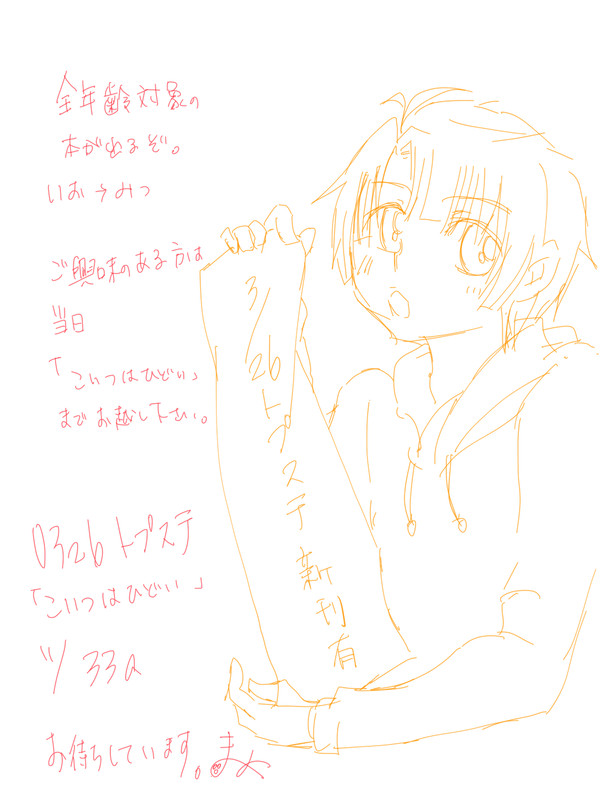 全年齢対象の
本が出るぞ。
いお→みつ
ご興味のある方は
当日
「こいつはひどい」
までお越し下さい。
0326トプステ
「こいつはひどい」
ツ33a
お待ちしています。
3/26トプステ新刊有